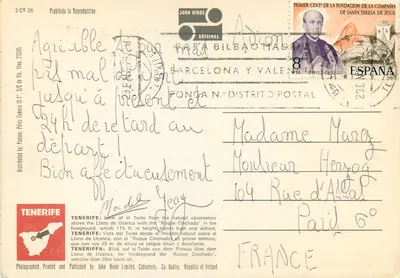 3 CT 26
Prohibida la Reproducción.
JOHN HINDE
ORIGINAL
PRIMER CENT. DE LA FUNDACION DE LA COMPAÑIA
DE SANTA TERESA DE JESUS
8 PTAS
ESPAÑA
Avion
PARA BILBAO MADRID
BARCELONA Y VALENCIA
PONGA N.º DISTRITO POSTAL
Agréable
pas mal de
jusqu'à présent et
24h de retard au
départ.
Bien affectueusement
Jean
Madame Marcy
Monsieur Herzog
104 Rue d'Assas
Paris 6°
FRANCE
TENERIFE
TENERIFE: View of el Teide from the natural observatory
above the Llano de Ucanca with the "Roque Cinchado" in the
foreground which 115 ft. in height stands high and defiant.
TENERIFE: Vista del Teide desde el mirador natural sobre el
Llano de Ucanca, con el "Roque Cinchado", en primer término,
que con sus 35 m. de altura se yergue altivo y desafiante.
TENERIFE: Blick auf el Teide von dem Plateau über dem
Llano de Ucanca. Im Vordergrund der "Roque Cinchado", welcher
über 35m hoch ist.
Photographed, Printed and Published by John Hinde Limited, Cabinteely, Co. Dublin, Republic of Ireland